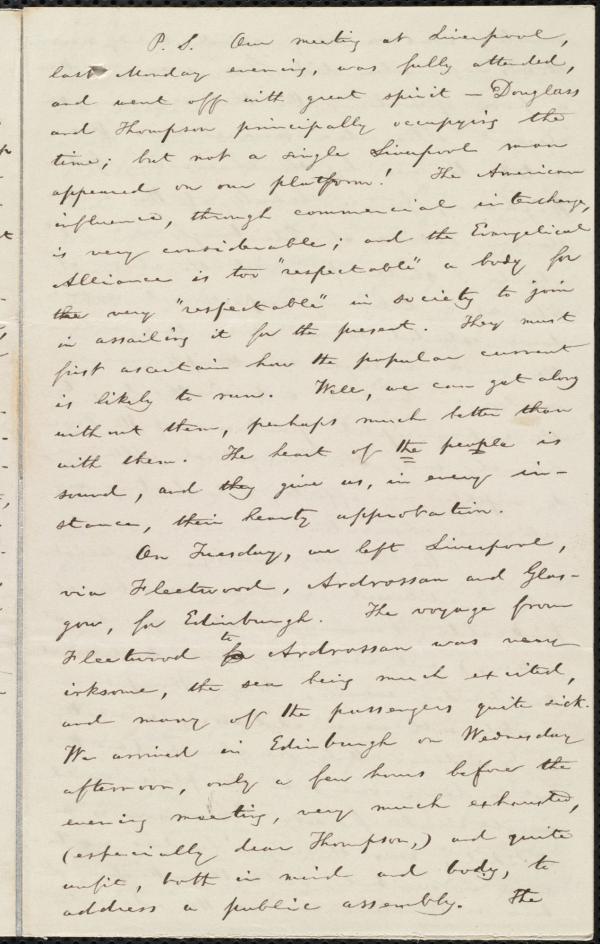 P. S. Our meeting at Liverpool,
last Monday evening, was fully attended,
and went off with great spirit — Douglass
and Thompson principally occupying the
time; but not a single Liverpool man
appeared on our platform! The American
influence, through commercial interchange,
is very considerable; and the Evangelical
Alliance is too "respectable" a body for
the very "respectable" in society to join
in assailing it for the present. They must
first ascertain how the popular current
is likely to run. Well, we can get along
without them, perhaps much better than
with them. The heart of the people is
sound, and they give us, in every in-
stance, their hearty approbation.
On Tuesday, we left Liverpool,
via Fleetwood, Ardrossan and Glas-
gow, for Edinburgh. The voyage from
Fleetwood to Ardrossan was very
irksome, the sea being much excited,
and many of the passengers quite sick.
We arrived in Edinburgh on Wednesday
afternoon, only a few hours before the
evening meeting, very much exhausted,
(especially dear Thompson,) and quite
unfit, both in mind and body, to
address a public assembly. The